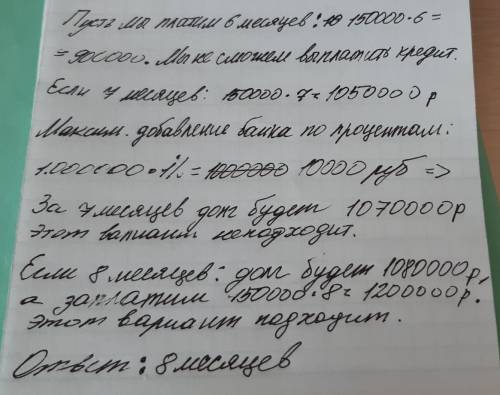 Пусть мы платим 6 месяцев: 150000·6=
= 900000. Мы не сможем выплатить кредит.
Если 7 месяцев: 150000·7=1050000р
Максим. добавление банка по процентам:
1.000000·1%= 10000 руб =>
За 7 месяцев долг будет 1070000р
этот вариант не подходит.
Если 8 месяцев: долг будет 1080000р,
а заплатим 150000·8=1200000р.
Этот вариант подходит.
Ответ: 8 месяцев